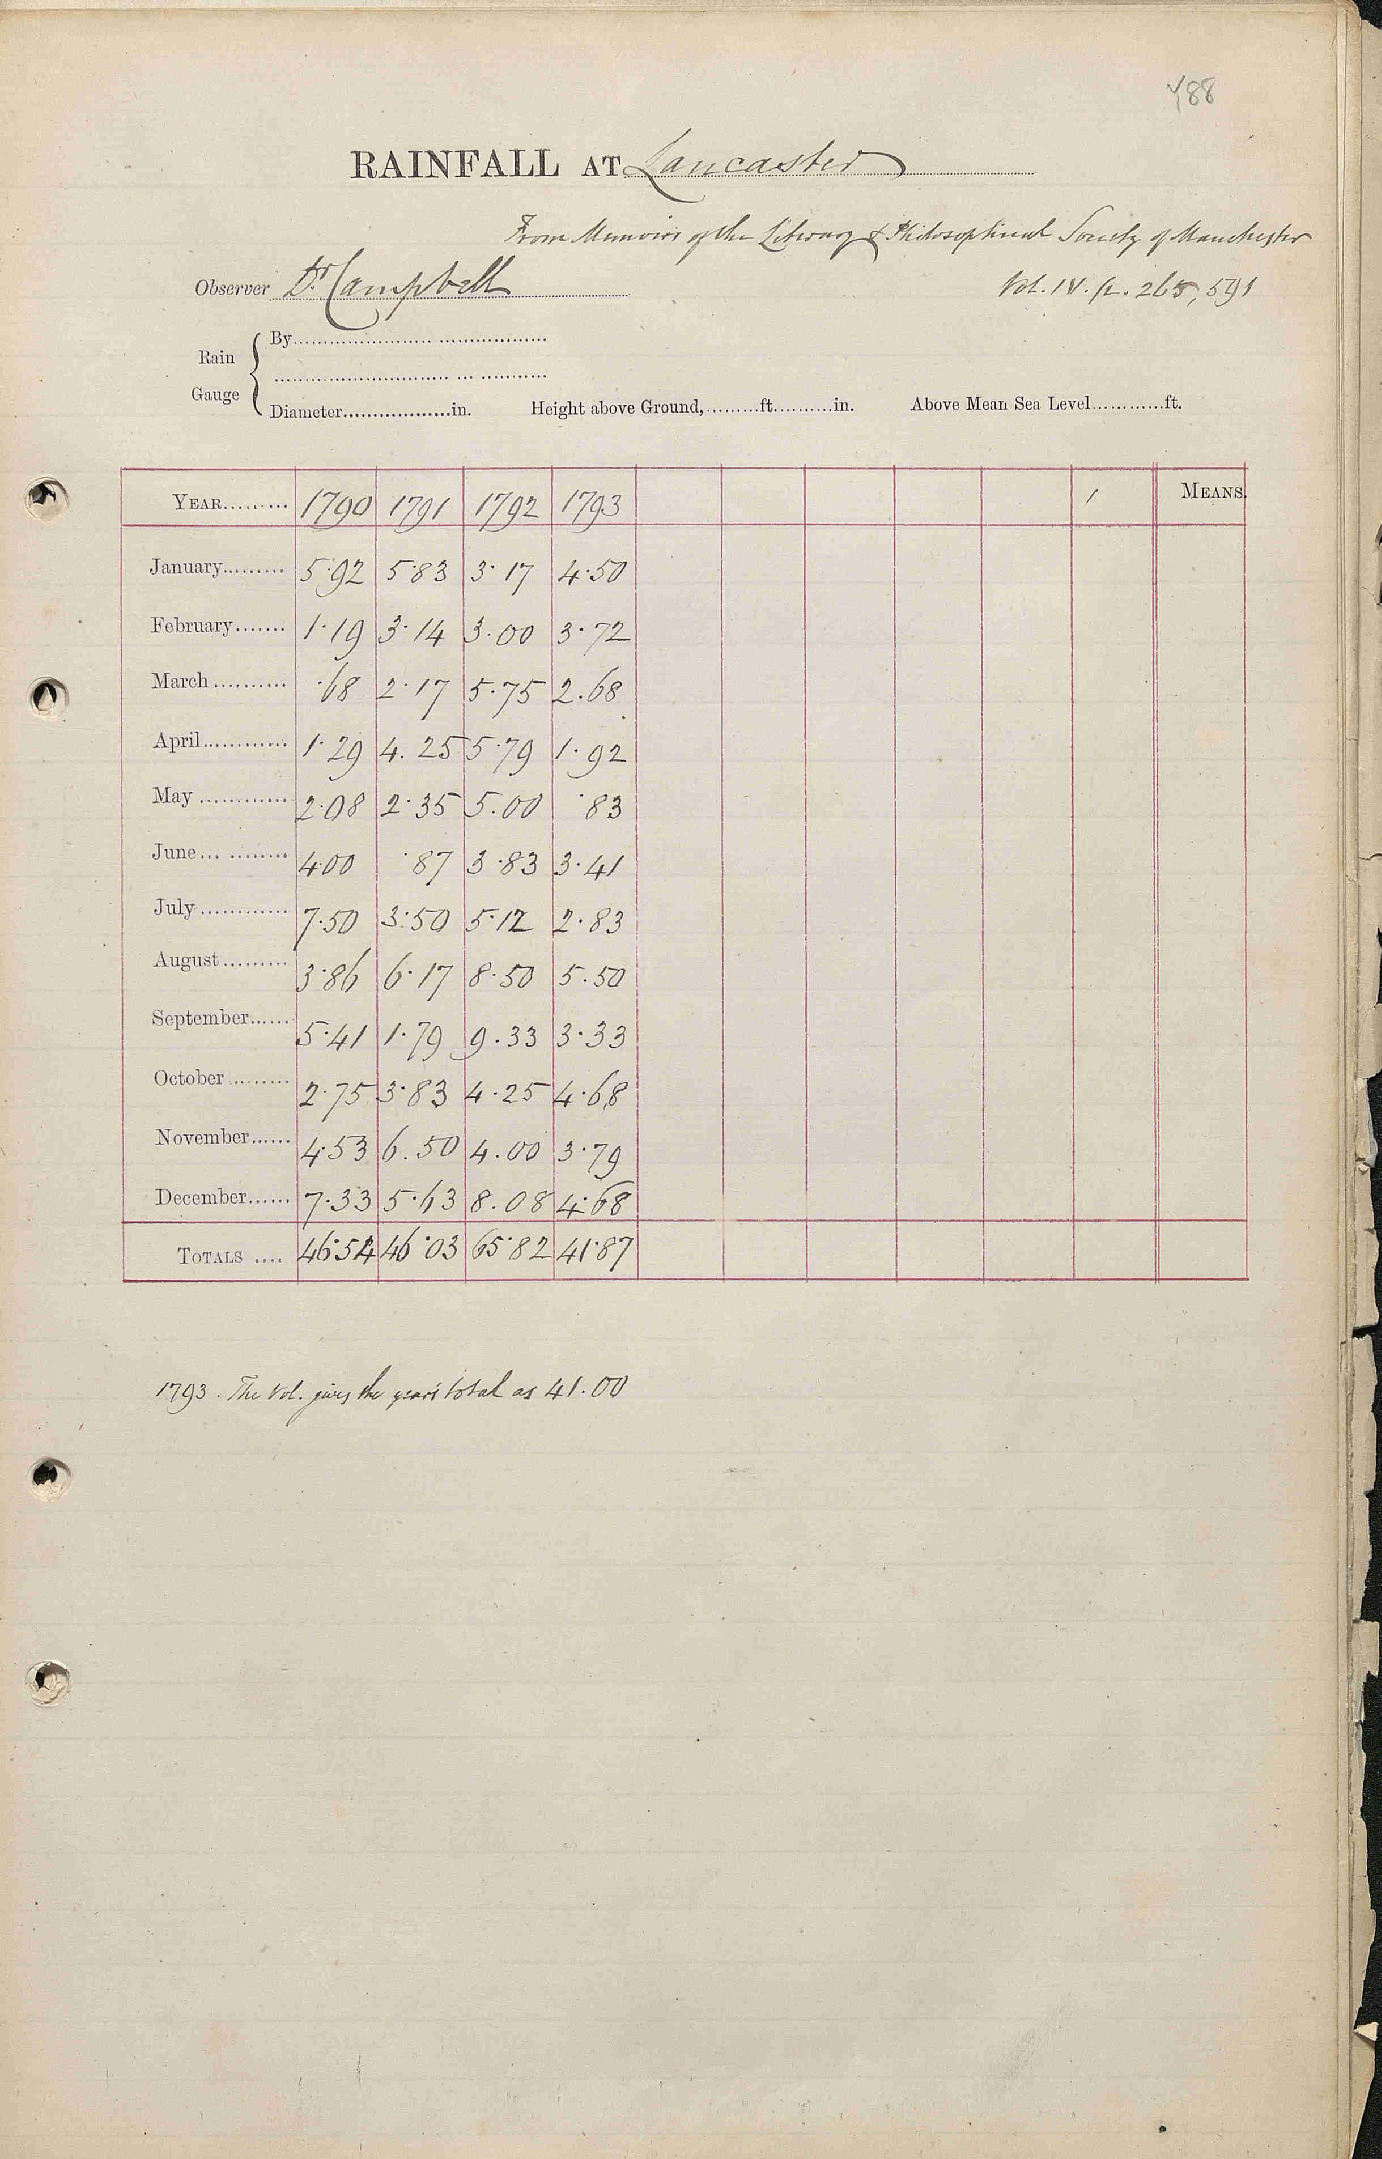 488
RAINFALL AT Lancaster
From Memoirs of the Literary & Philosophical Society of Manchester
Observer Dr Campbell Vol. IV. p. 265, 591
Rain Gauge
By
Diameter in. Height above Ground, ft. in. Above Mean Sea Level ft.
YEAR 1790 1791 1792 1793 MEANS.
January 5·92 5·83 3·17 4·50
February 1·19 3·14 3.00 3·72
March ·68 2·17 5·75 2.68
April 1·29 4.25 5·79 1·92
May 2·08 2·35 5.00 ·83
June 4·00 ·87 3·83 3·41
July 7·50 3·50 5·12 2·83
August 3·86 6·17 8·50 5.50
September 5·41 1·79 9.33 3·33
October 2·75 3·83 4·25 4·68
November 4·53 6.50 4.00 3·79
December 7·33 5·63 8.08 4·68
TOTALS 46·54 46·03 65·82 41·87
1793. The Vol. gives the year's total as 41.00